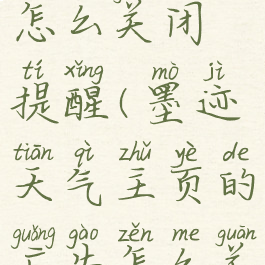 怎么关闭
tí xǐng mò jì
提醒(墨迹
tiān qì zhǔ yè de
天气主页的
guǎng gào zěn me guān
广告怎么关